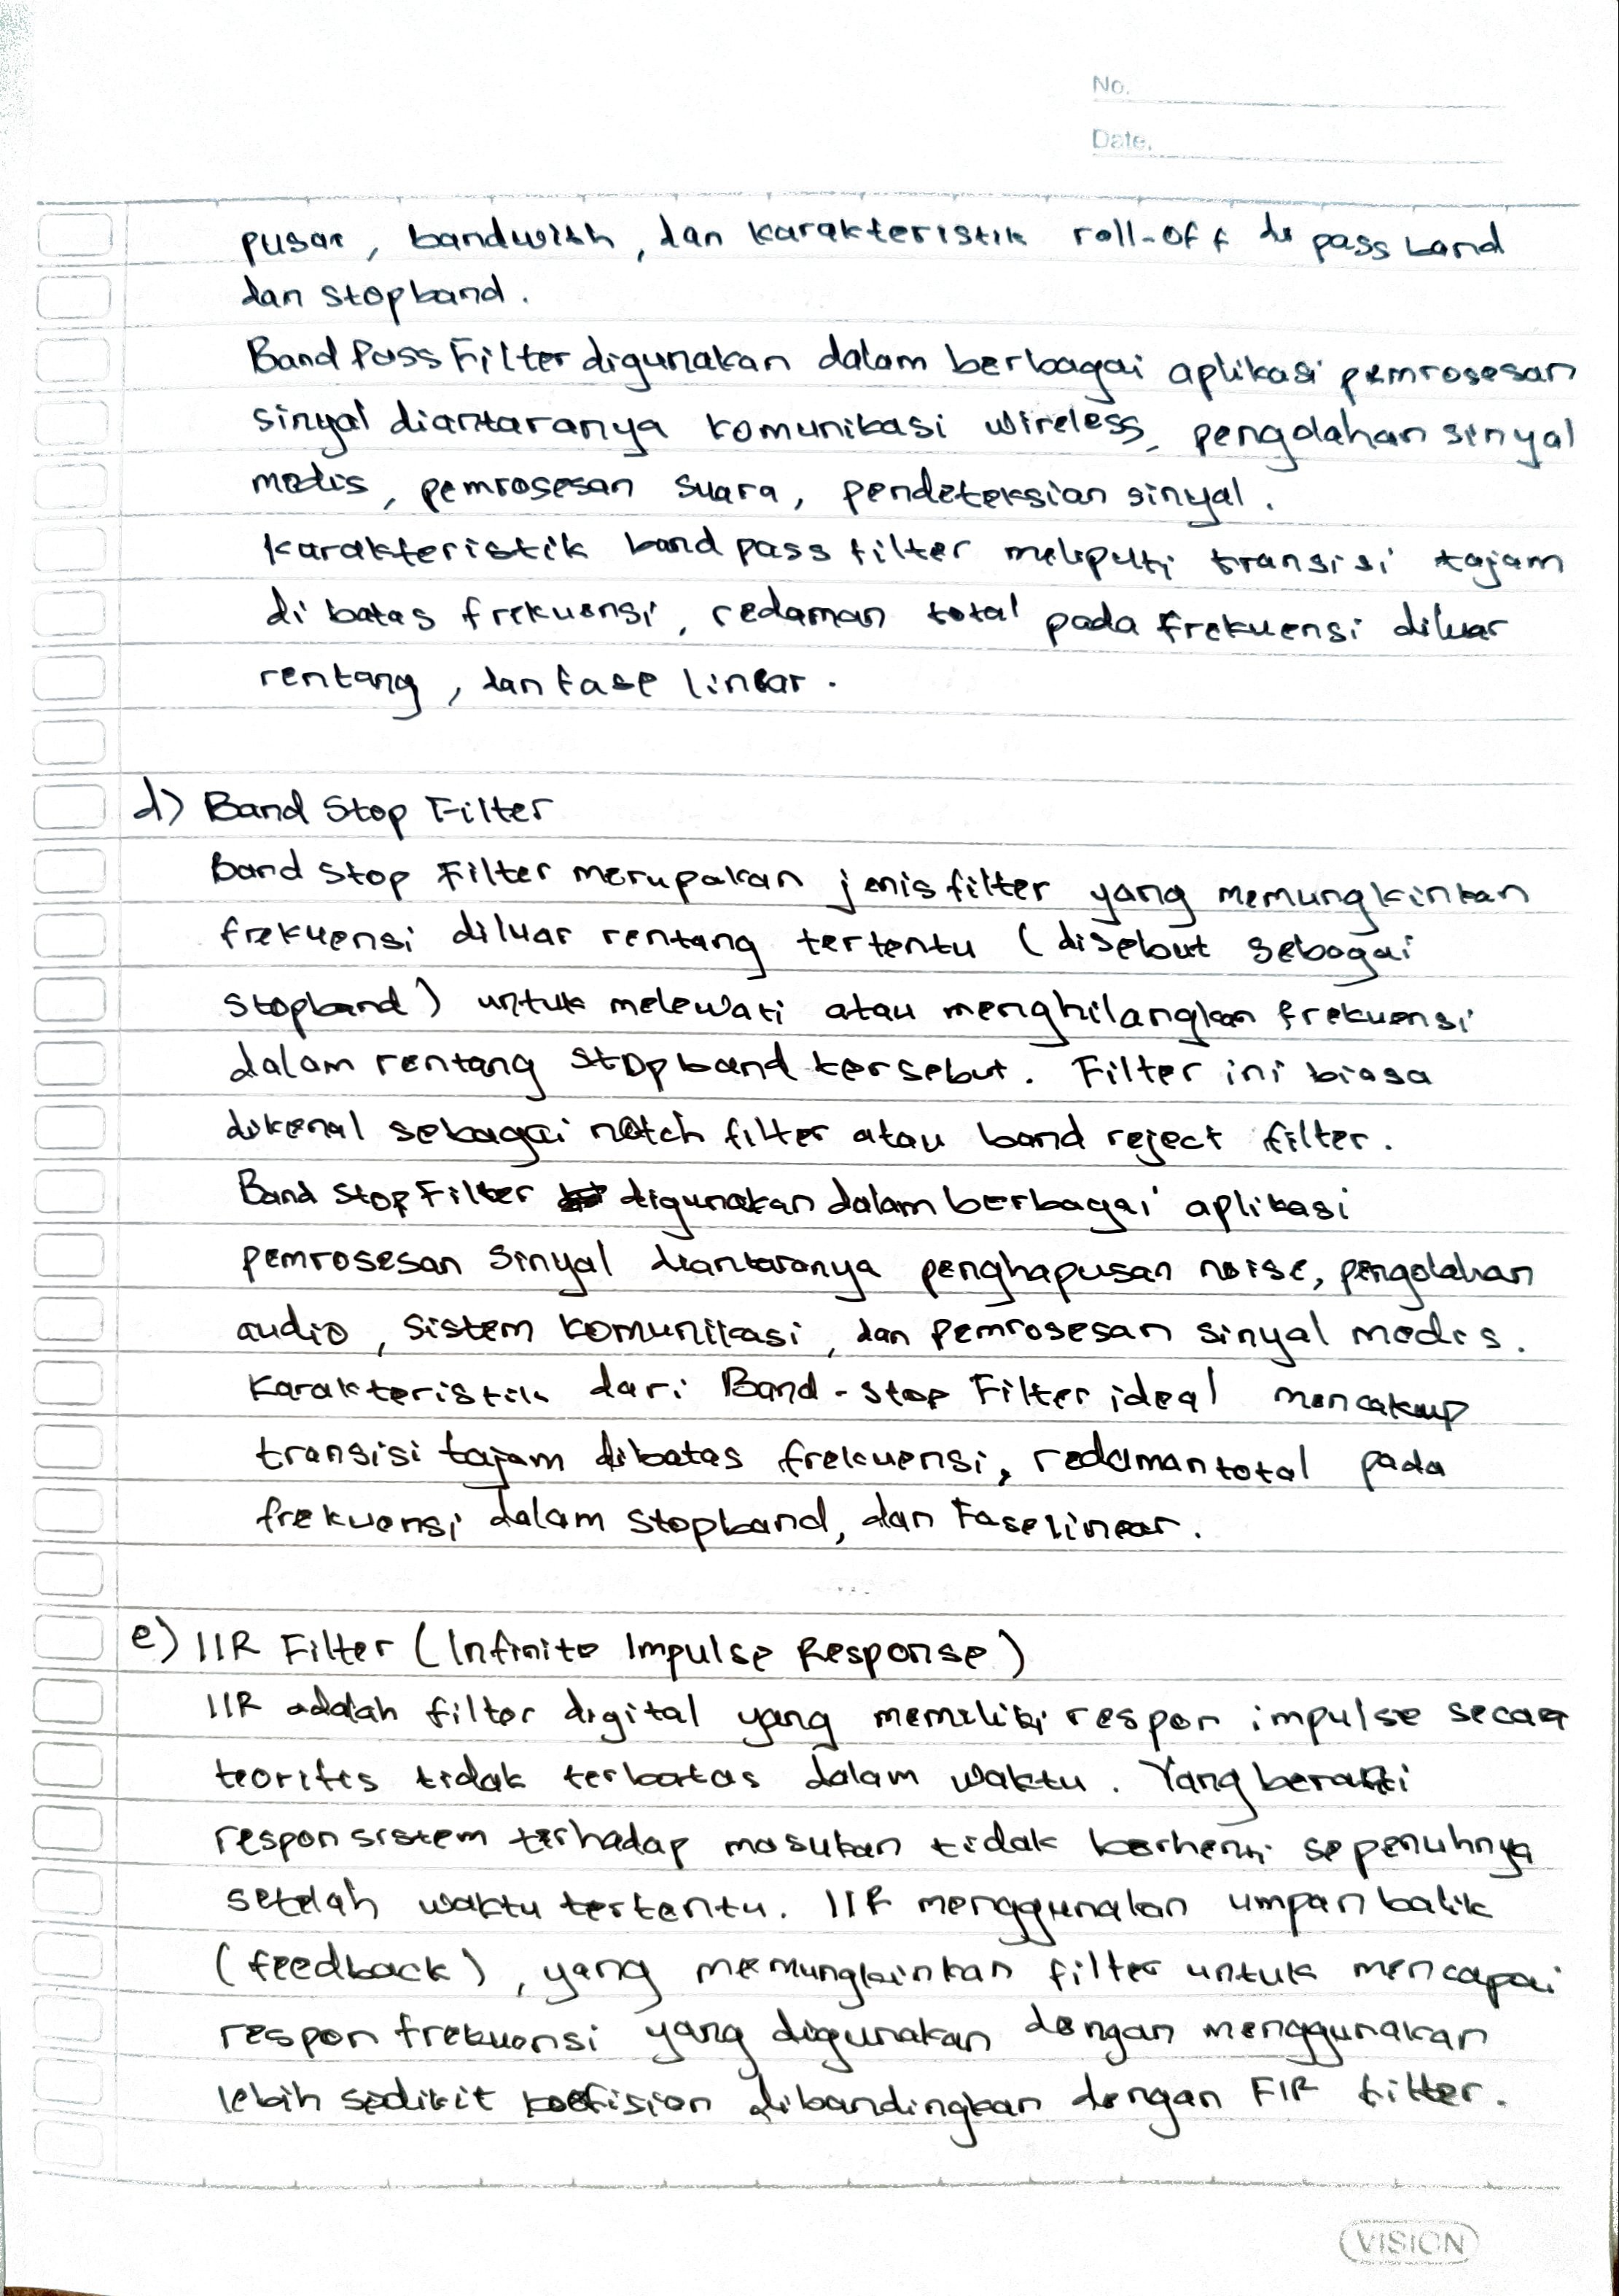 No.
Date.
pusat, bandwith, dan karakteristik roll-off di passband
dan stopband.
Band Pass Filter digunakan dalam berbagai aplikasi pemrosesan
sinyal diantaranya komunikasi wireless, pengolahan sinyal
medis, pemrosesan suara, pendeteksian sinyal.
Karakteristik band pass filter meliputi transisi tajam
di batas frekuensi, redaman total pada frekuensi diluar
rentang, dan fase linear.
d) Band Stop Filter
Band Stop Filter merupakan jenis filter yang memungkinkan
frekuensi diluar rentang tertentu (disebut sebagai
stopband) untuk melewati atau menghilangkan frekuensi
dalam rentang stopband tersebut. Filter ini biasa
dikenal sebagai notch filter atau band reject filter.
Band Stop Filter digunakan dalam berbagai aplikasi
pemrosesan sinyal diantaranya penghapusan noise, pengolahan
audio, sistem komunikasi, dan pemrosesan sinyal medis.
Karakteristik dari Band-stop Filter ideal mencakup
transisi tajam dibatas frekuensi, redaman total pada
frekuensi dalam stopband, dan Fase linear.
e) IIR Filter (Infinite Impulse Response)
IIR adalah filter digital yang memiliki respon impulse secara
teoritis tidak terbatas dalam waktu. Yang berarti
respon sistem terhadap masukan tidak berhenti sepenuhnya
setelah waktu tertentu. IIR menggunakan umpan balik
(feedback), yang memungkinkan filter untuk mencapai
respon frekuensi yang digunakan dengan menggunakan
lebih sedikit koefisien dibandingkan dengan FIR filter.
VISION